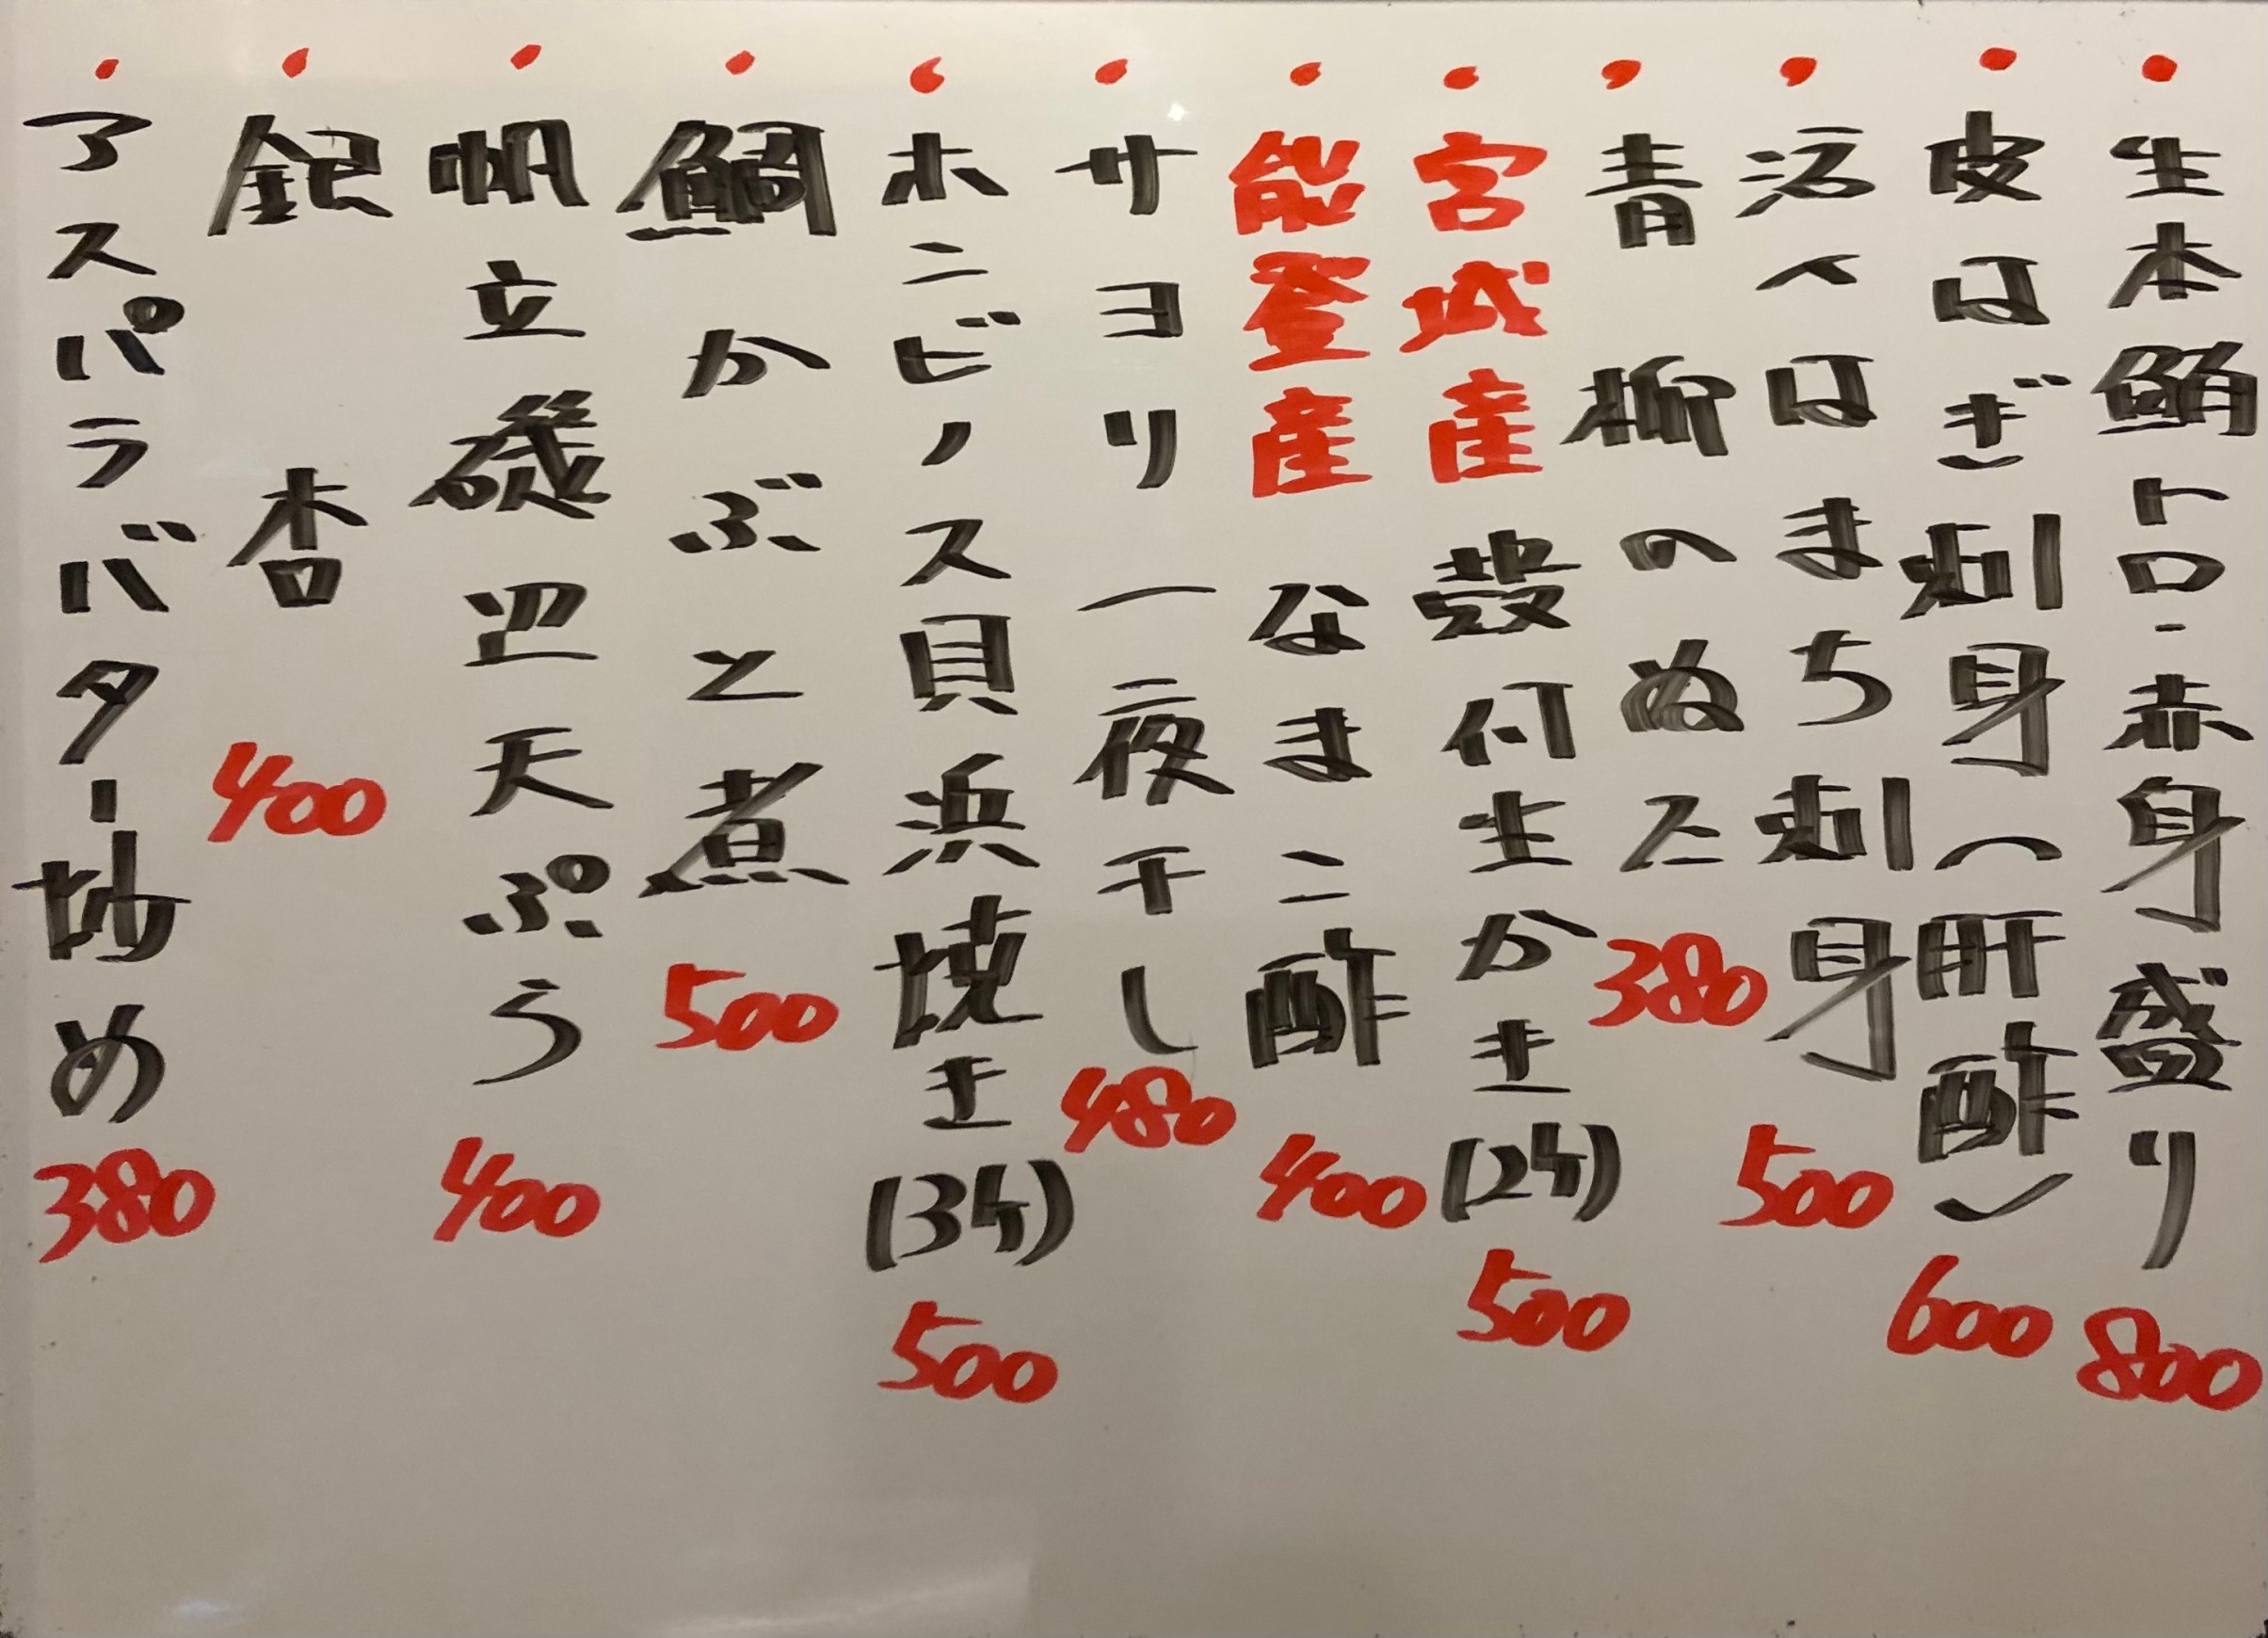 ・生本鮪トロ・赤身盛り 800
・皮はぎ刺身(肝酢) 600
・活〆はまち刺身 500
・青柳のぬた 380
・宮城産 殻付生かき(2ケ) 500
・能登産 なまこ酢 400
・サヨリ一夜干し 480
・ホンビノス貝浜焼き(3ケ) 500
・鯛かぶと煮 500
・帆立磯辺天ぷら 400
・銀杏 400
・アスパラバター炒め 380